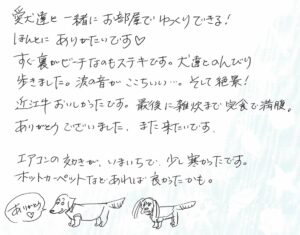 愛犬達と一緒にお部屋でゆっくりできる!
ほんとに ありがたいです♡
すぐ裏がビーチなのもステキです。犬達とのんびり
歩きました。波の音が ここちいい…。そして絶景!
近江牛おいしかったです。最後に雑炊まで完食で満腹。
ありがとう ございました。また来たいです。
エアコンの効きが、いまいちで、少し寒かったです。
ホットカーペットなどあれば 良かったかも。
ありがとう♡